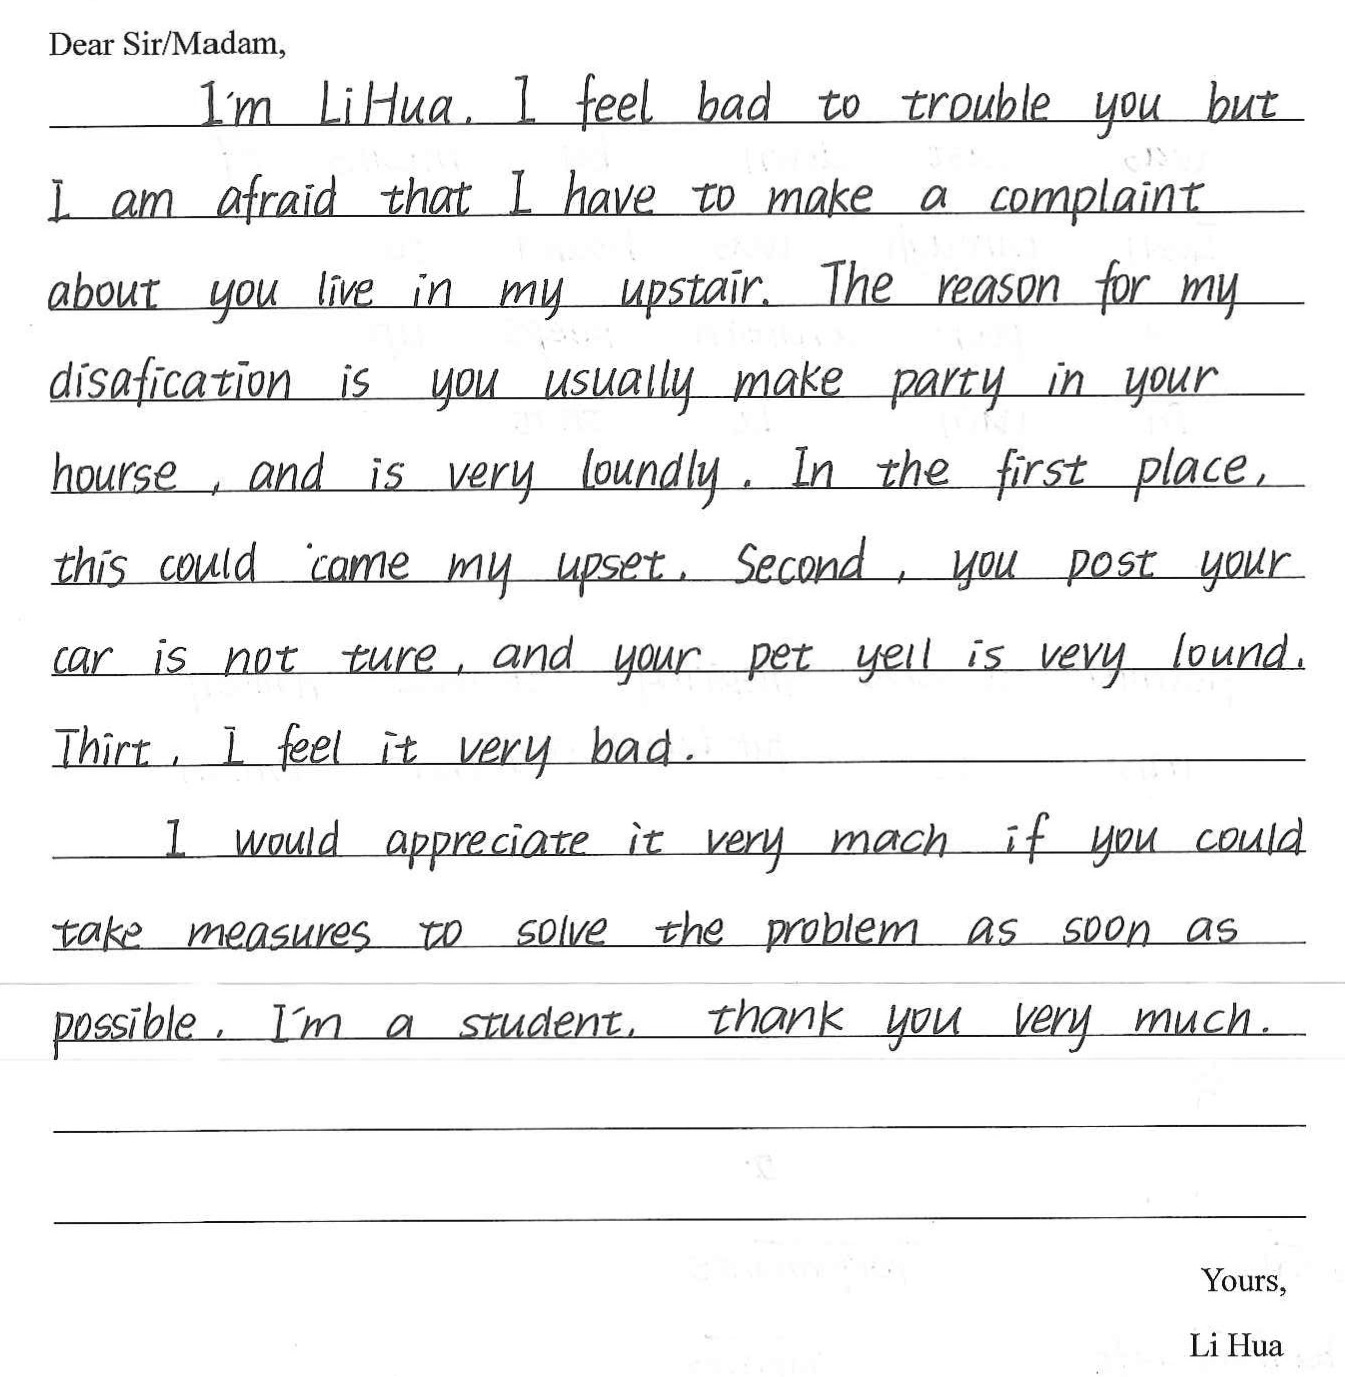 Dear Sir/Madam,
I'm Li Hua. I feel bad to trouble you but
I am afraid that I have to make a complaint
about you live in my upstair. The reason for my
disafication is you usually make party in your
hourse, and is very loundly. In the first place,
this could came my upset. Second, you post your
car is not ture, and your pet yell is vevy lound.
Thirt, I feel it very bad.
I would appreciate it very mach if you could
take measures to solve the problem as soon as
possible. I'm a student. thank you very much.
Yours,
Li Hua